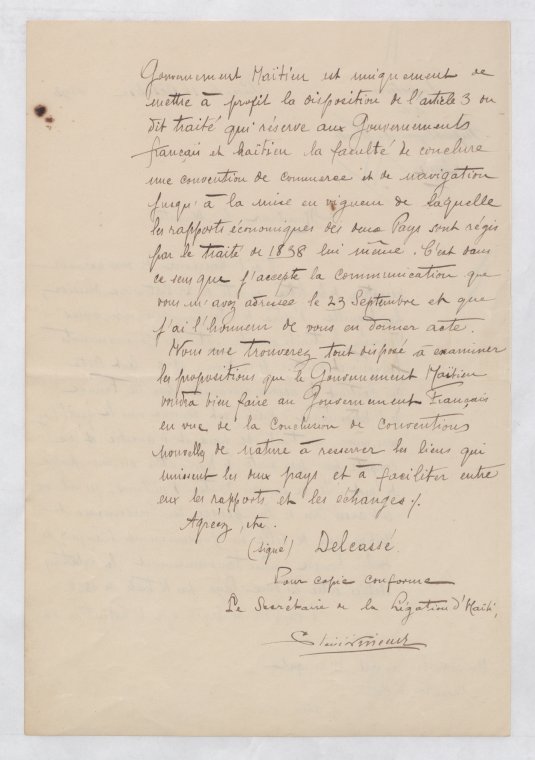 Gouvernement Haïtien est uniquement de
mettre à profit la disposition de l'article 3 du
dit traité qui réserve aux Gouvernements
français et haïtien la faculté de conclure
une convention de commerce et de navigation
jusqu'à la mise en vigueur de laquelle
les rapports économiques des deux Pays sont régis
par le traité de 1838 lui même. C'est dans
ce sens que j'accepte la communication que
vous m'avez adressée le 23 Septembre et que
j'ai l'honneur de vous en donner acte.
Vous me trouverez tout disposé à examiner
les propositions que le Gouvernement Haïtien
voudra bien faire au Gouvernement Français
en vue de la conclusion de conventions
nouvelles de nature à resserrer les liens qui
unissent les deux pays et à faciliter entre
eux les rapports et les échanges ./.
Agréez, etc.
(signé) Delcassé.
Pour copie conforme
Le Secrétaire de la Légation d'Haïti,